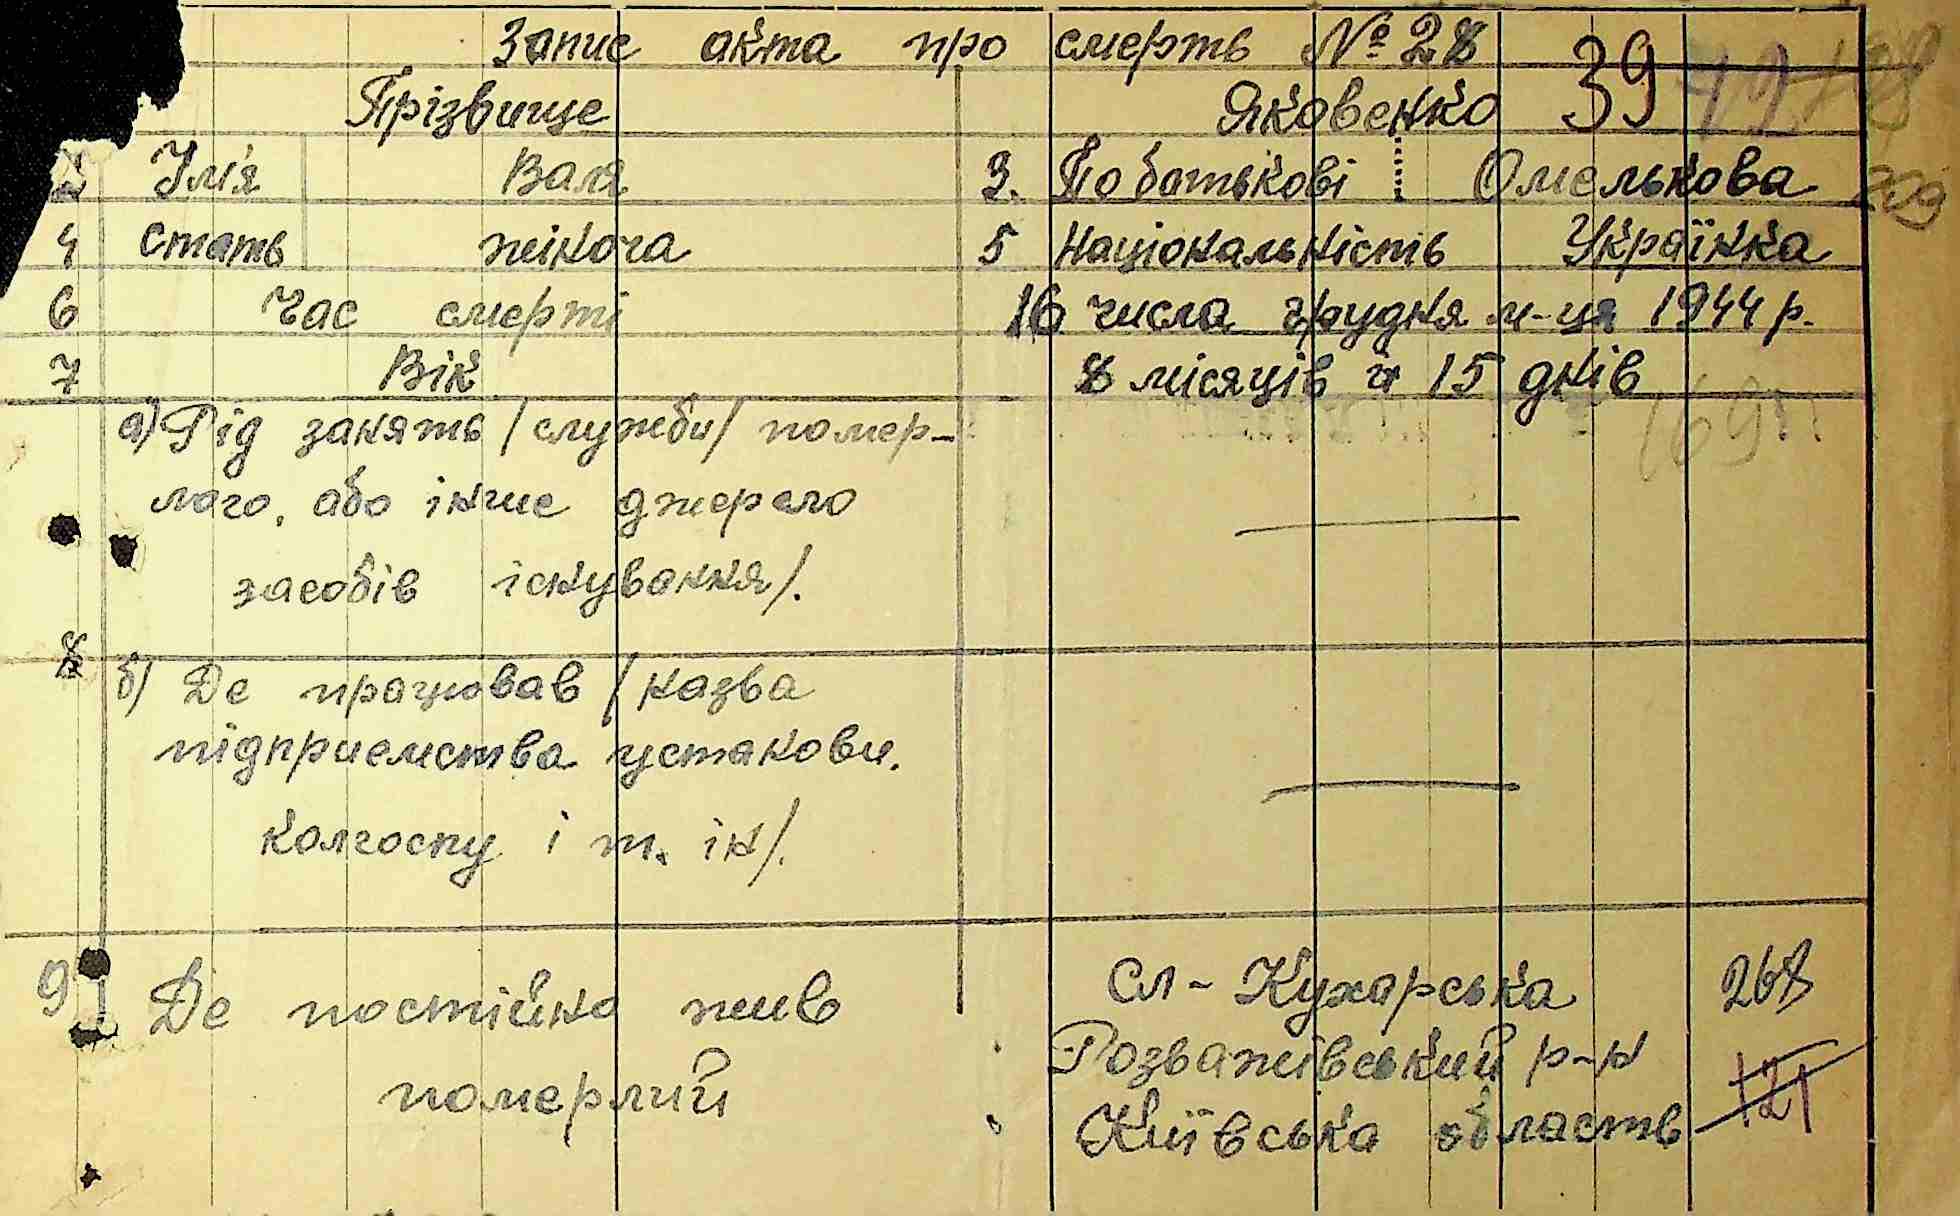 Запис акта про смерть № 28
39
Прізвище Яковенко
2 Ім'я Валя 3. По батькові Омелькова
209
4 стать жіноча 5 Національність Українка
6 Час смерті 16 числа грудня м-ця 1944 р.
7 Вік 8 місяців и 15 днів
169
а) Рід занять /служби/ помер-
лого, або інше джерело
засобів існування/.
8
б) Де працював /назва
підприємства установи.
колгоспу і т. ін/.
9 Де постійно жив Сл - Кухарська 268
померлий Розважівський р-н
Київська область 121